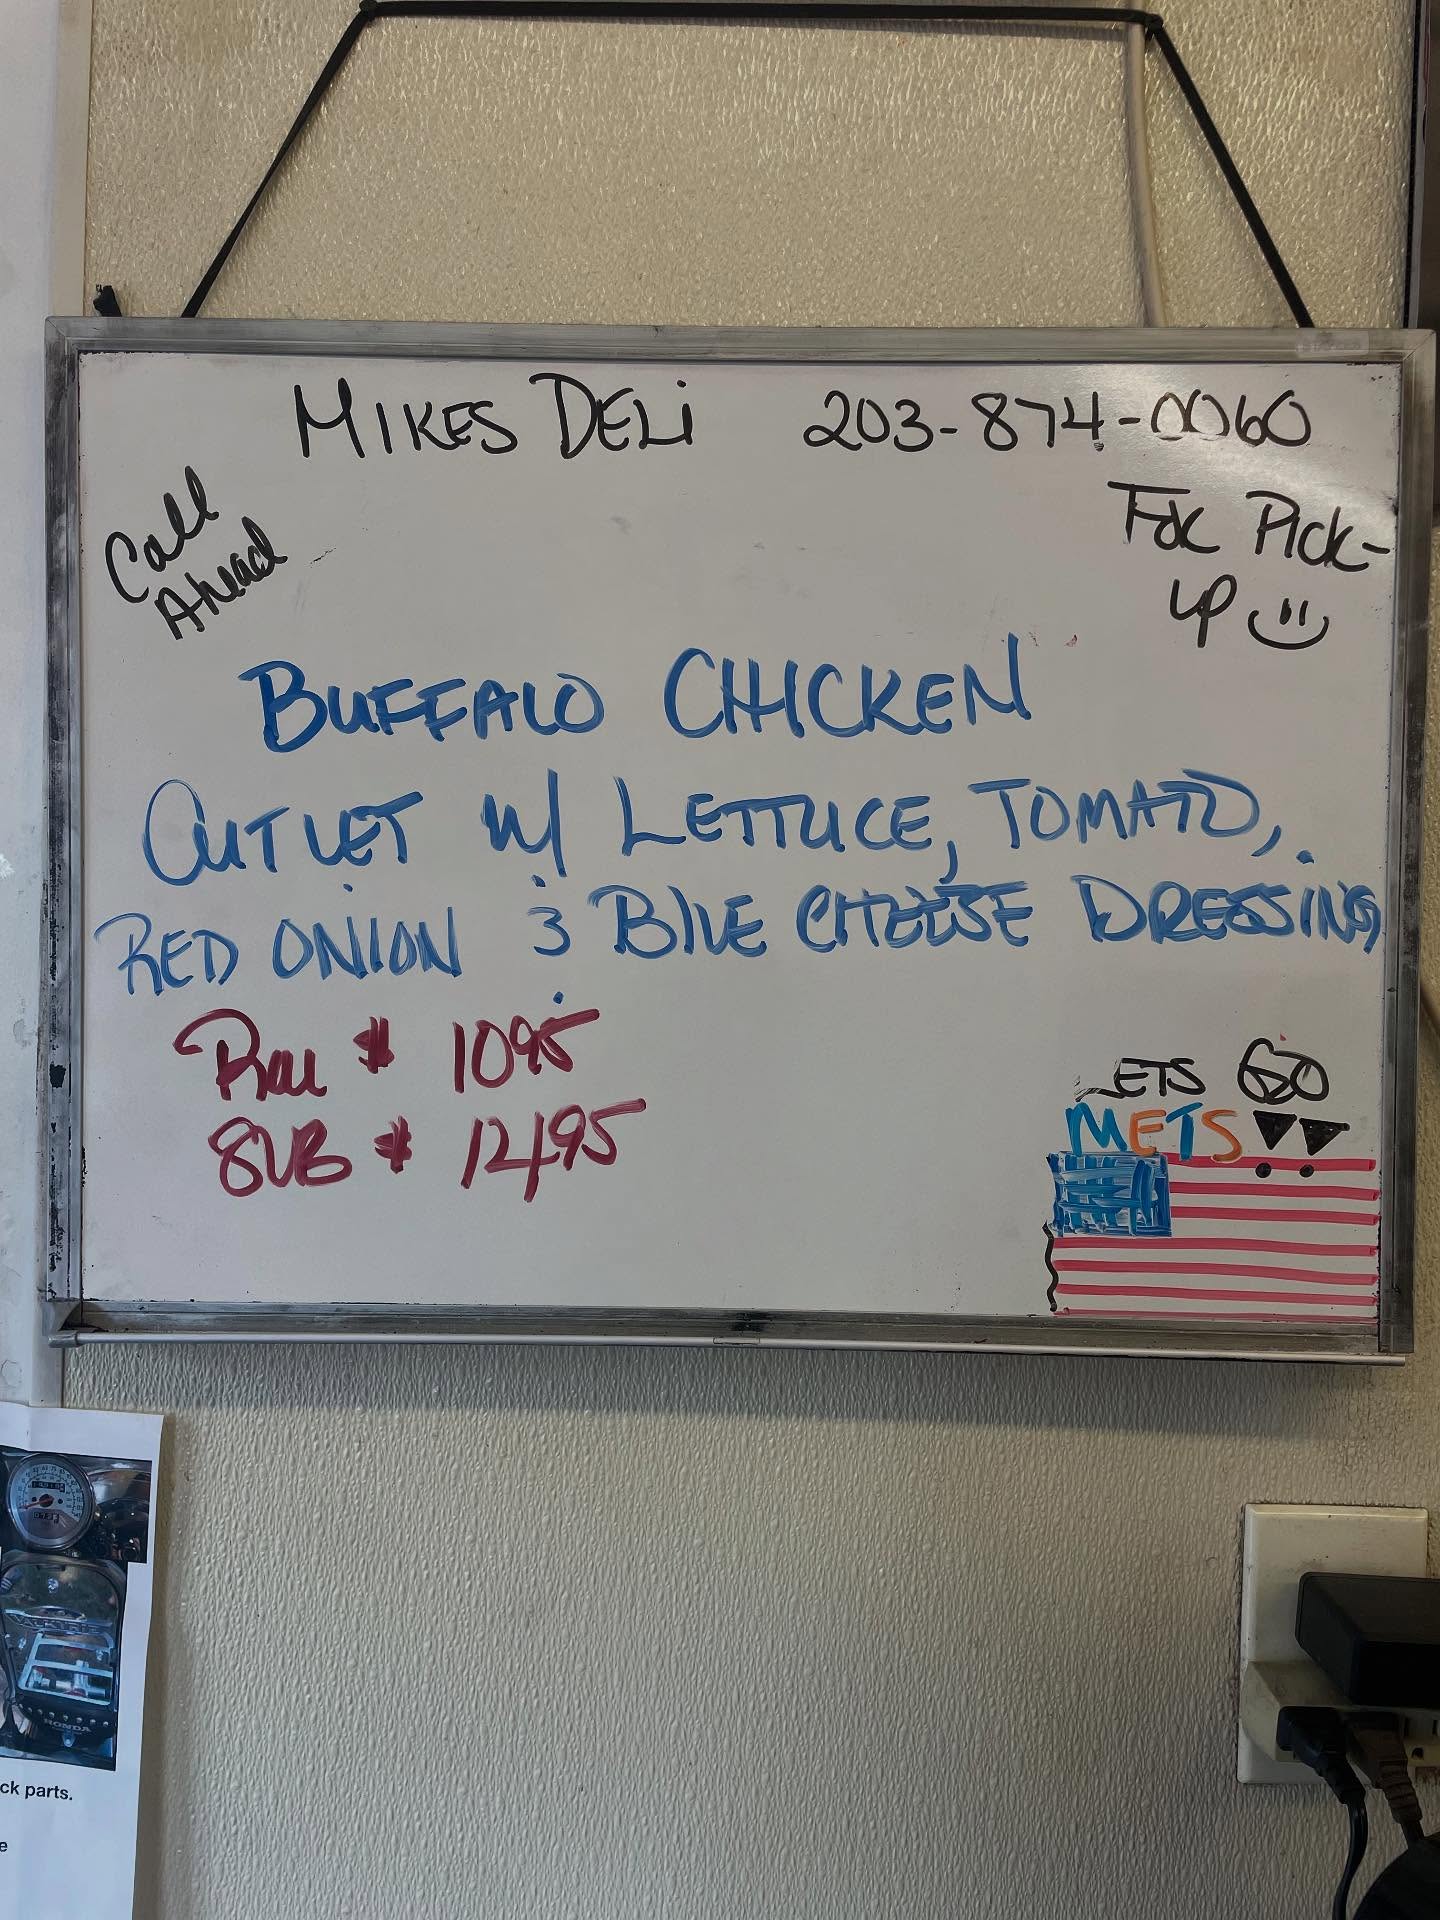 MIKES DELi 203-874-0060
Call Ahead
For Pick-up
BUFFALO CHICKEN
CUTLET w/ LETTUCE, TOMATO,
RED ONION & BLUE CHEESE DRESSING
Roll $ 1095
SUB $ 12,95
LETS GO
METS!!
HONDA
ck parts.
e